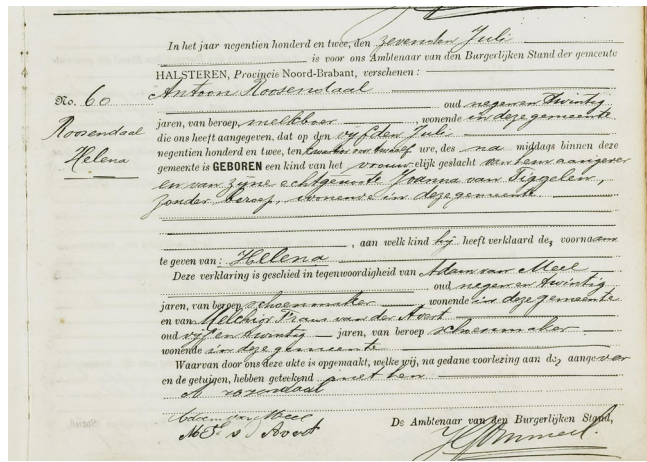 In het jaar negentien honderd en twee, den zevenden Juli
is voor ons Ambtenaar van den Burgerlijken Stand der gemeente
HALSTEREN, Provincie Noord-Brabant, verschenen:
No. 60
Antoon Roosendaal
oud negen en twintig
Roosendaal
Helena
jaren, van beroep melkboer, wonende in deze gemeente
die ons heeft aangegeven, dat op den vijfden Juli
negentien honderd en twee, ten ure, des na middags binnen deze
gemeente is GEBOREN een kind van het vrouwelijk geslacht van hem aangever
en van zijne echtgenoote Ivanna van Tiggelen,
zonder beroep, wonende in deze gemeente
, aan welk kind hij heeft verklaard de voornaam
te geven van: Helena
Deze verklaring is geschied in tegenwoordigheid van Adam van Meel
oud negen en twintig
jaren, van beroep schoenmaker wonende in deze gemeente
en van Melchior Frans van der Avert
oud vijf en twintig jaren, van beroep schoenmaker
wonende in deze gemeente
Waarvan door ons deze akte is opgemaakt, welke wij, na gedane voorlezing aan de aangever
en de getuigen, hebben geteekend met hen
A rozendaal
Adam van Meel
v Avert
De Ambtenaar van den Burgerlijken Stand,